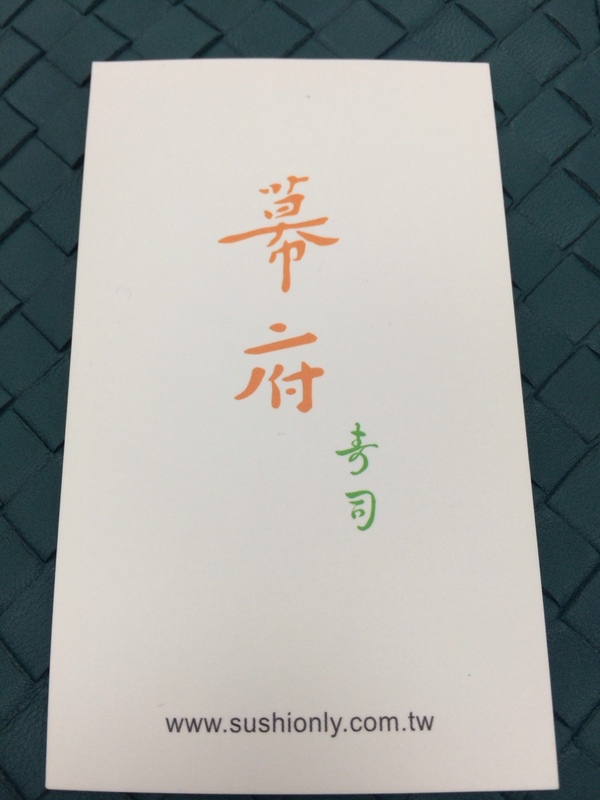 幕府
寿司
www.sushionly.com.tw